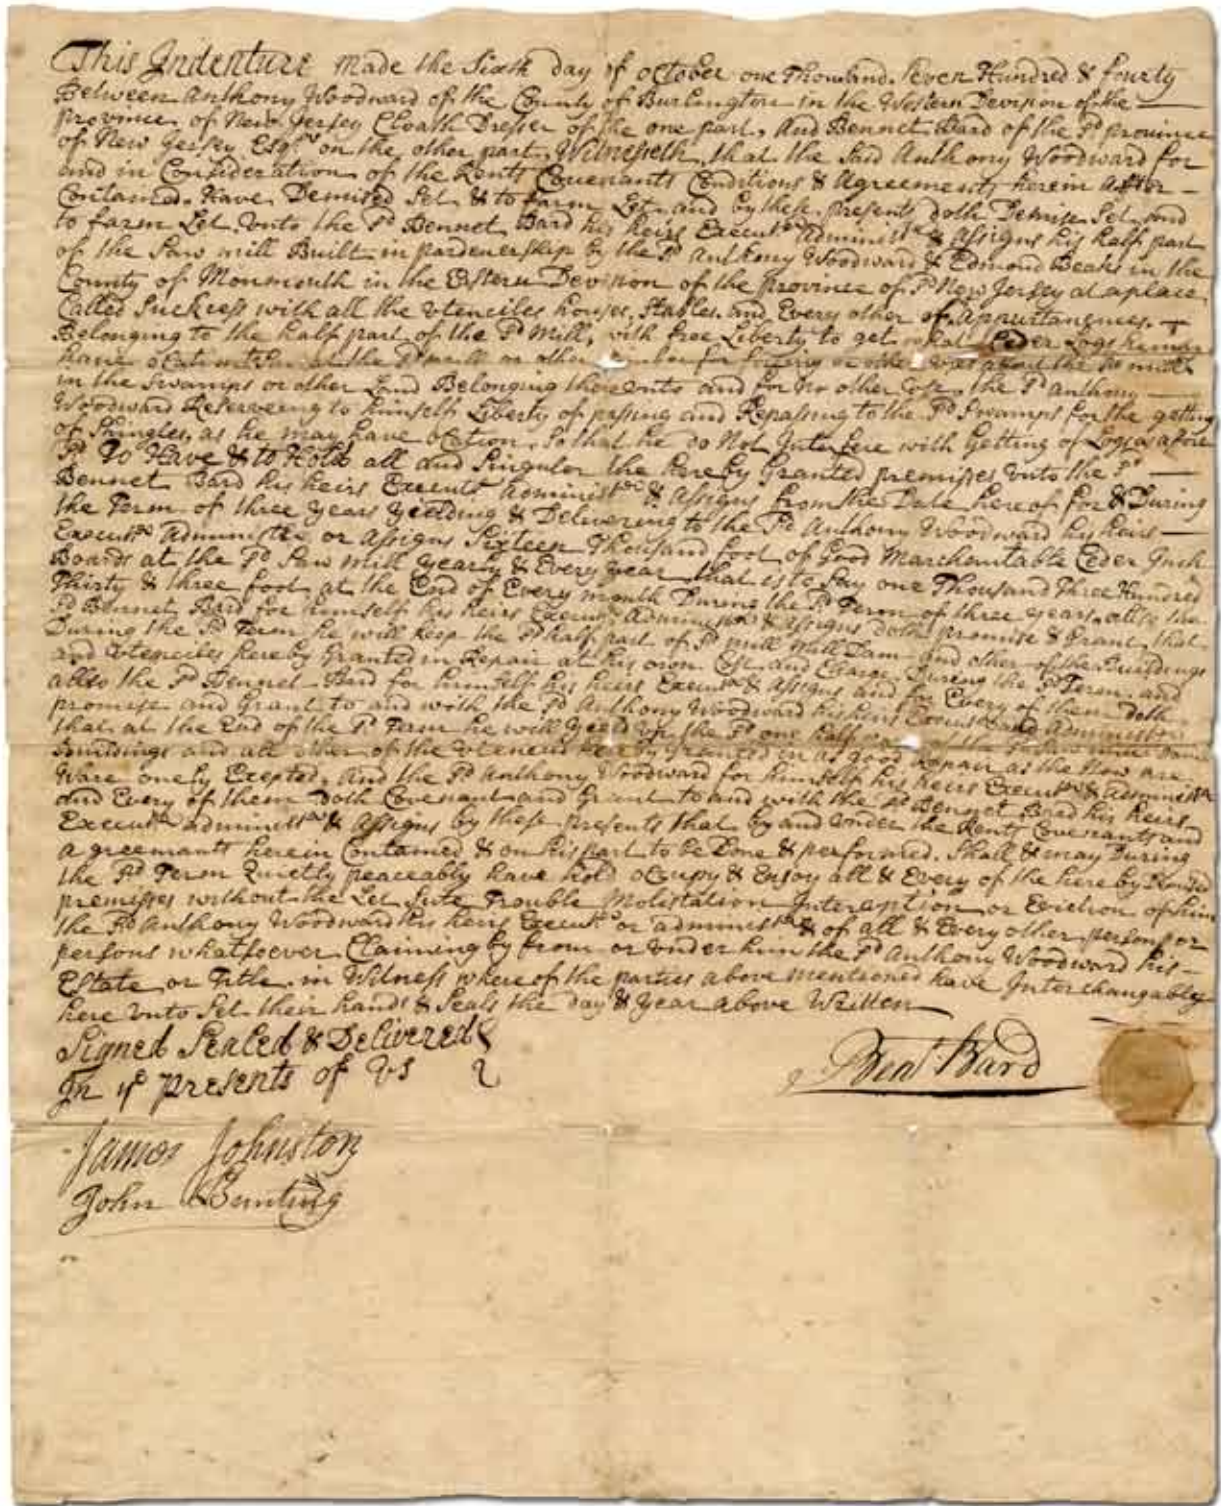 This Indenture Made the Sixth day of october one Thousand Seven Hundred & fourty
Between Anthony Woodward of the County of Burlington in the Western Devision of the
province of New Jersey Cloath Dresser of the one part, And Bennet Bard of the Sd province
of New Jersey Esqr on the other part, Witnesseth, that the Said Anthony Woodward for
and in Consideration of the Rents Covenants Conditions & Agreements herein after
Contained. Have Demised Set & to farm Let and by these presents doth Demise Set and
to farm Let Unto the Sd Bennet Bard his heirs Execut Administ & Assigns his half part
of the Saw mill Built in pardenership by the Sd Anthony Woodward & Edmond Beaks in the
County of Monmouth in the Estern Devision of the province of Sd New Jersey at a place
Called Suckress with all the Utenciles houses, Stables, and Every other of Appurtanences
Belonging to the half part of the Sd Mill, with free Liberty to get Ceder Logs
have ocation the Sd mill or other timber for or other about the Sd mill
in the Swamps or other Land Belonging thereunto and for no other Use, the Sd Anthony
Woodward Reserveing to himself Liberty of passing and Repassing to the Sd Swamps for the getting
of Shingles, as he may have ocation, So that he do Not Interfere with Getting of Logs afore
Sd To Have & to Hold all and Singuler the hereby Granted premisses Unto the Sd
Bennet Bard his heirs Execut Administ & Assigns from the Date hereof for & During
the Term of three years yeelding & Delivering to the Sd Anthony Woodward his heirs
Execut Administ or Assigns Sixteen Thousand foot of Good Marchantable Ceder Inch
Boards at the Sd Saw mill yearly & Every year that is to Say one Thousand Three Hundred
Thirty & three foot at the End of Every month During the Sd Term of three years, allso the
Sd Bennet Bard for himself his heirs Execut Administ & Assigns doth promise & Grant, that
During the Sd Term he will keep the Sd half part of Sd mill mill Dam and other of the Buildings
and Utenciles hereby Granted in Repair at his own Cost and Charge During the Sd Term, and
allso the Sd Bennet Bard for himself his heirs Execut & Assigns and for Every of them doth
promise and Grant to and with the Sd Anthony Woodward his heirs Execut and Administ
that at the End of the Sd Term he will yeeld up the Sd one half part of the Sd Saw mill Dam
Buildings and all other of the Utenciles hereby Granted in as good Repair as the Now are
Ware onely Excepted, And the Sd Anthony Woodward for himself his heirs Execut & Administ
and Every of them doth Covenant and Grant to and with the Sd Bennet Bard his heirs
Execut administ & Assigns by these presents that by and Under the Rents Covenants and
agreemants herein Contained & on his part to be Done & performed. Shall & may During
the Sd Term Quietly peaceably have hold ocupy & Enjoy all & Every of the hereby Demised
premisses without the Let Sute Trouble Molistation Interuption or Eviction of him
the Sd Anthony Woodward his heirs Execut or administ & of all & Every other person or
persons whatsoever Claiming by from or Under him the Sd Anthony Woodward his
Estate or Title. in Witness where of the parties above mentioned have Interchangably
here Unto Set their hands & Seals the day & year above Written
Signed Sealed & Delivered
In ye presents of Us
Bent Bard
James Johnston
John Bunting